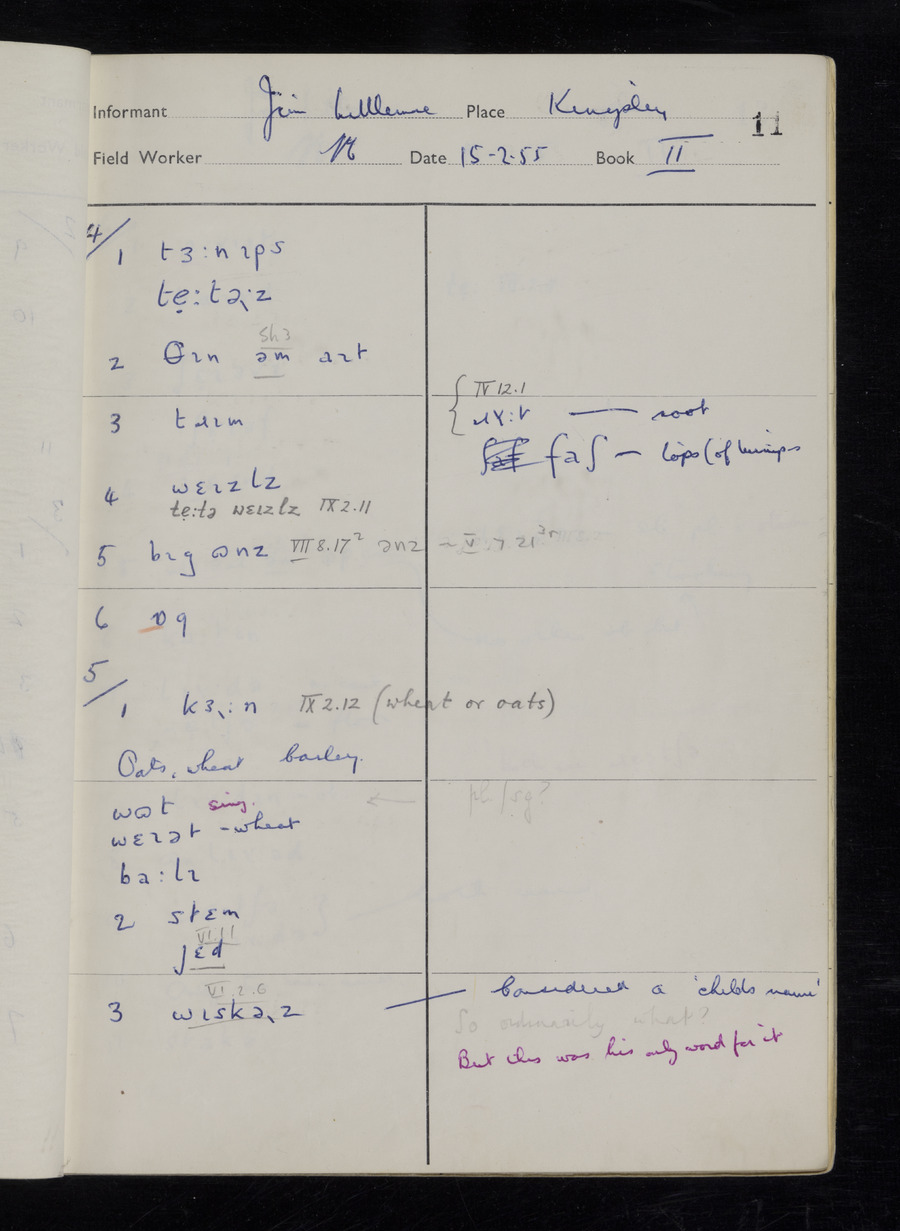 Informant Jim Place Kingsley 11
Field Worker Date 15-2-55 Book II
4/
1 tɜ:nɪps
tẹ:tə˞:z
Sh 3
2 θɪn əm aɪt
IV 12.1
3 — root
faʃ — tops (of turnips
4 wɛɪzlz
tẹ:tə wɛɪzlz IX 2.11
5 bɪg ɷnz VII 8.17² ənz ~ V.7.21
6 ɒg
5/
1 kɜ˞:n IX 2.12 (wheat or oats)
Oats, wheat barley.
wɷt sing. ← pl/sg?
wɛɪət - wheat
ba:lɪ
2 stɛm
VI.1.1
ʃɛd
VI.2.6
3 wɪskə˞z — Considered a 'childs name'
So ordinarily what?
But this was his only word for it